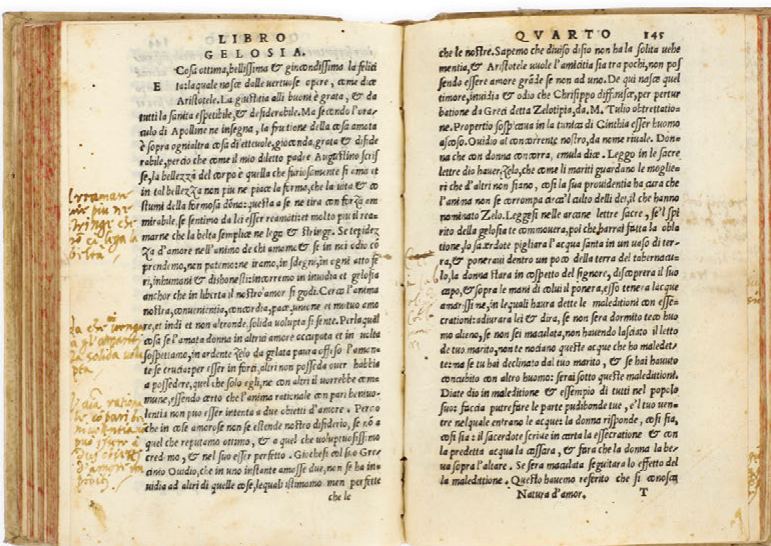 LIBRO
GELOSIA.
E Cosa ottima, bellissima & giocondissima la felici
ta: laquale nasce dalle vertuose opere, come dice
Aristotele. La giustitia alli buoni è grata, & da
tutti la sanita espetibile, & desiderabile. Ma secondo l'ora-
culo di Apolline ne insegna, la fruitione della cosa amata
è sopra ogni altra cosa diletteuole, gioconda, grata & deside
rabile, percio che come il mio diletto padre Augustino scris
se, la bellezza del corpo è quella che furiosamente si ama et
in tal bellezza non piu ne piace la forma, che la uita & co
stumi della formosa dõna: questa a se ne tira con forza am
mirabile. se sentimo da lei esser reamati: et molto piu il rea-
marne che la belta semplice ne lega & stringe. Se tepidez
za d'amore nell'animo de chi amiamo & se in noi odio cõ
prendemo, non patemo: ne iramo, in sdegni, in ogni atto fe
ri, inhumani & dishonesti: incorremo in inuidia et gelosia
anchor che in liberta il nostro amor si godi. Cerca l'anima
nostra, conuenientia, concordia, pace, unione et mutuo amo
re, et indi et non altronde, solida uolupta si sente. Perla qual
cosa se l'amata donna in altri amore occupata et in uolta
sospettiamo, in ardente zelo da gelata paura offeso l'aman-
te se crucia: per esser in forci, altri non posseda ouer habbia
a possedere, quel che solo egli, ne con altri il uorrebbe comu
mune, essendo certo che l'anima rationale con pari beniuo-
lentia non puo esser intenta a due obietti d'amore. Perco
che in cose amorose non se estende nostro disiderio, se nõ a
quel che reputamo ottimo, & a quel che uoluptuosissimo
credemo, & nel suo esser perfetto. Giochesi col suo Gre-
cinio Ouidio, che in uno instante amosse due, non se ha in
uidia ad altri di quelle cose, lequali istimamo men perfette
che le
QVARTO 145
che le nostre. Sapemo che diuiso disio non ha la solita uehe
mentia, & Aristotele uuole l'amicitia sia tra pochi, non pos
sendo essere amore grãde se non ad uno. De qui nasce quel
timore, inuidia & odio che Chrisippo diffinisce, per pertur
batione da Greci detta Zelotipia, da, M. Tulio obtrettatio-
ne. Propertio sospicaua in la tunica di Cinthia esser huomo
ascoso. Ouidio al concorrente nostro, da nome riuale. Don-
na che con donna concorra, emula dice. Leggo in le sacre
lettre dio hauer Zelo, che come li mariti guardano le moglie-
ri che d'altri non siano, cosi la sua prouidentia ha cura che
l'anima non se corrompa circa'l culto delli dei, il che hanno
nominato Zelo. Leggesi nelle arcane lettre sacre, se'l spi
rito della gelosia te commouera, poi che, harrai fatta la obla
tione, lo sacerdote pigliera l'acqua santa in un uaso di ter-
ra, & poneraui dentro un poco della terra del tabernacu-
lo, la donna stara in cospetto del signore, discoprera il suo
capo, & sopra le mani di colui il ponera, esso tenera l'acque
amarissime, in lequali haura dette le maledittioni con esse-
crationi: adiurara lei & dira, se non sera dormito teco huo
mo alieno, se non sei maculata, non hauendo lasciato il letto
de tuo marito, non te nociano queste acque che ho maledet-
te: ma se tu hai declinato dal tuo marito, & se hai hauuto
concubito con altro huomo: serai sotto queste maledittioni.
Diate dio in maledittione & essempio di tutti nel popolo
suo: faccia putrefare le parte pudibonde tue, e'l tuo uen-
tre nelquale entrano le acque: la donna risponde, cosi sia,
cosi sia: il sacerdote scriue in carta la essecratione & con
la predetta acqua la cassara, & fara che la donna la be-
ua sopra l'altare. Se sera maculata seguitara lo effetto del
la maledittione. Questo hauemo referito che si conosca
Natura d'amor. T